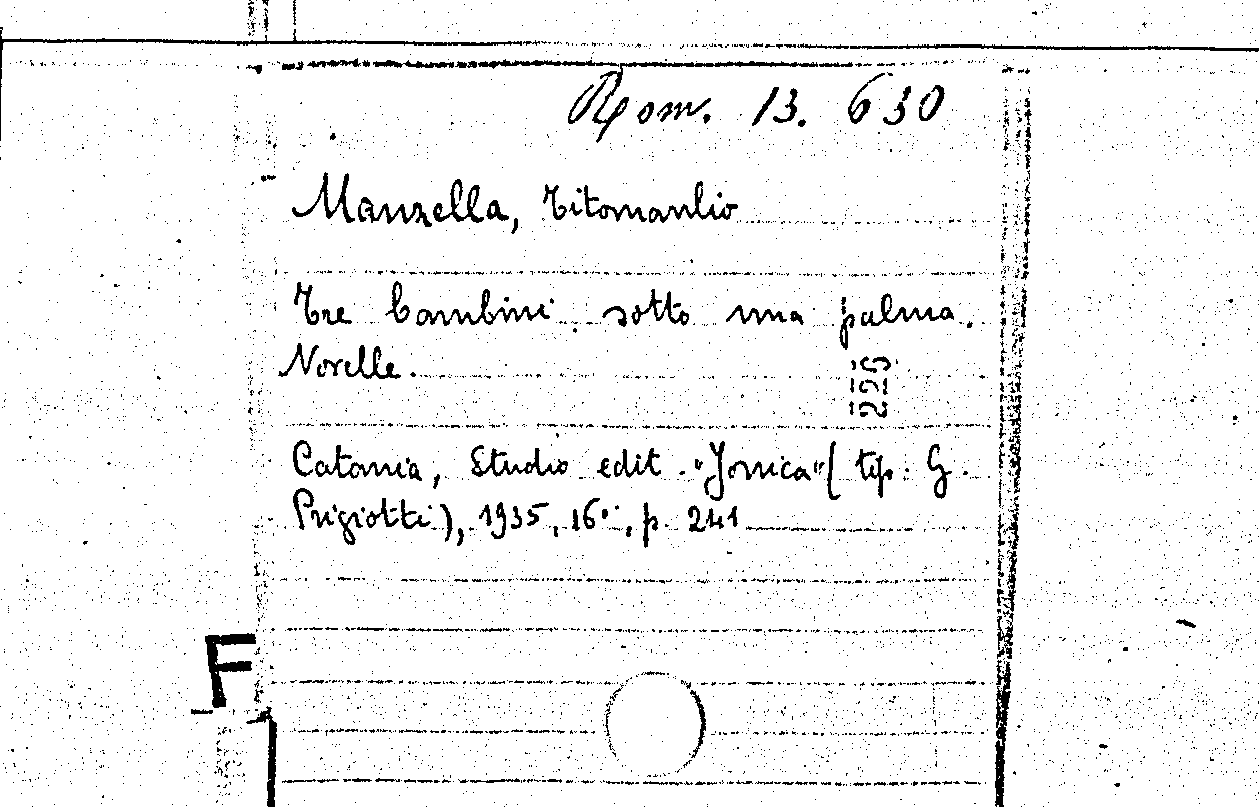 Rom. 13. 630
Manzella, Titomanlio
Tre bambini sotto una palma.
Novelle.
225
Catania, Studio edit. "Jonica" (tip. G.
Prigiotti), 1935, 16°, p. 241
F